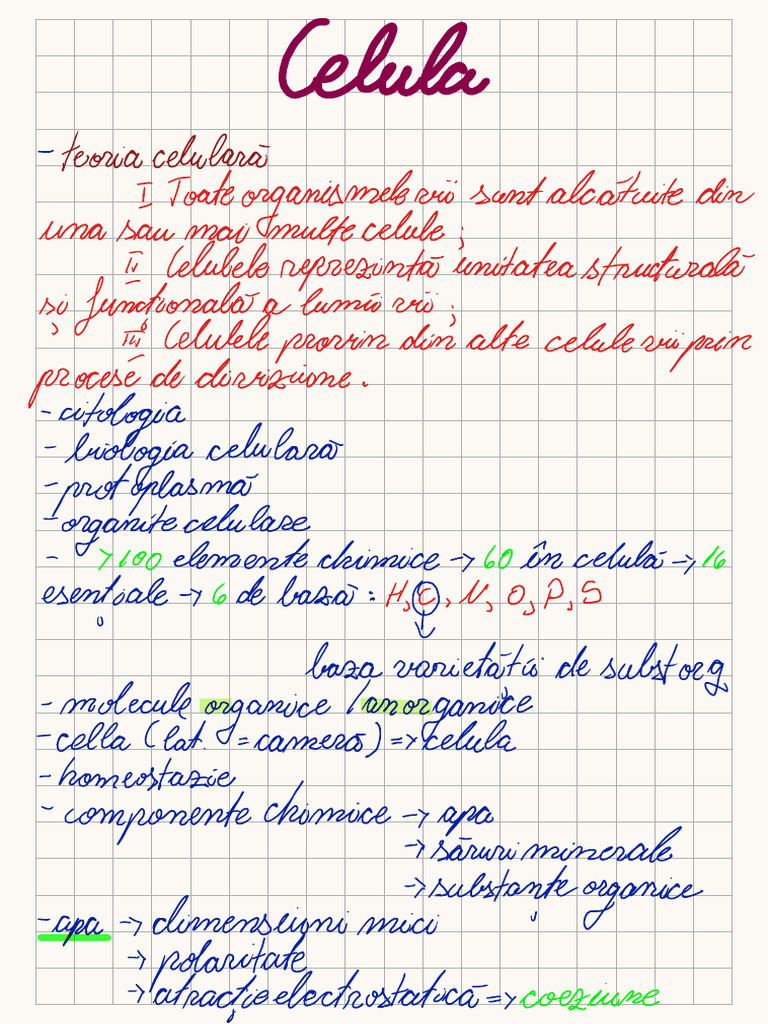 Celula
- teoria celulară
I Toate organismele vii sunt alcătuite din
una sau mai multe celule;
II Celulele reprezintă unitatea structurală
și funcțională a lumii vii;
III Celulele provin din alte celule vii prin
procese de diviziune.
- citologia
- biologia celulară
- protoplasmă
- organite celulare
- >100 elemente chimice → 60 în celulă → 16
esențiale → 6 de bază: H, C, N, O, P, S
baza varietății de subst org.
- molecule organice / anorganice
- cella (lat. = cameră) => celula
- homeostazie
- componente chimice → apa
→ săruri minerale
→ substanțe organice
- apa → dimensiuni mici
→ polaritate
→ atracție electrostatică => coeziune